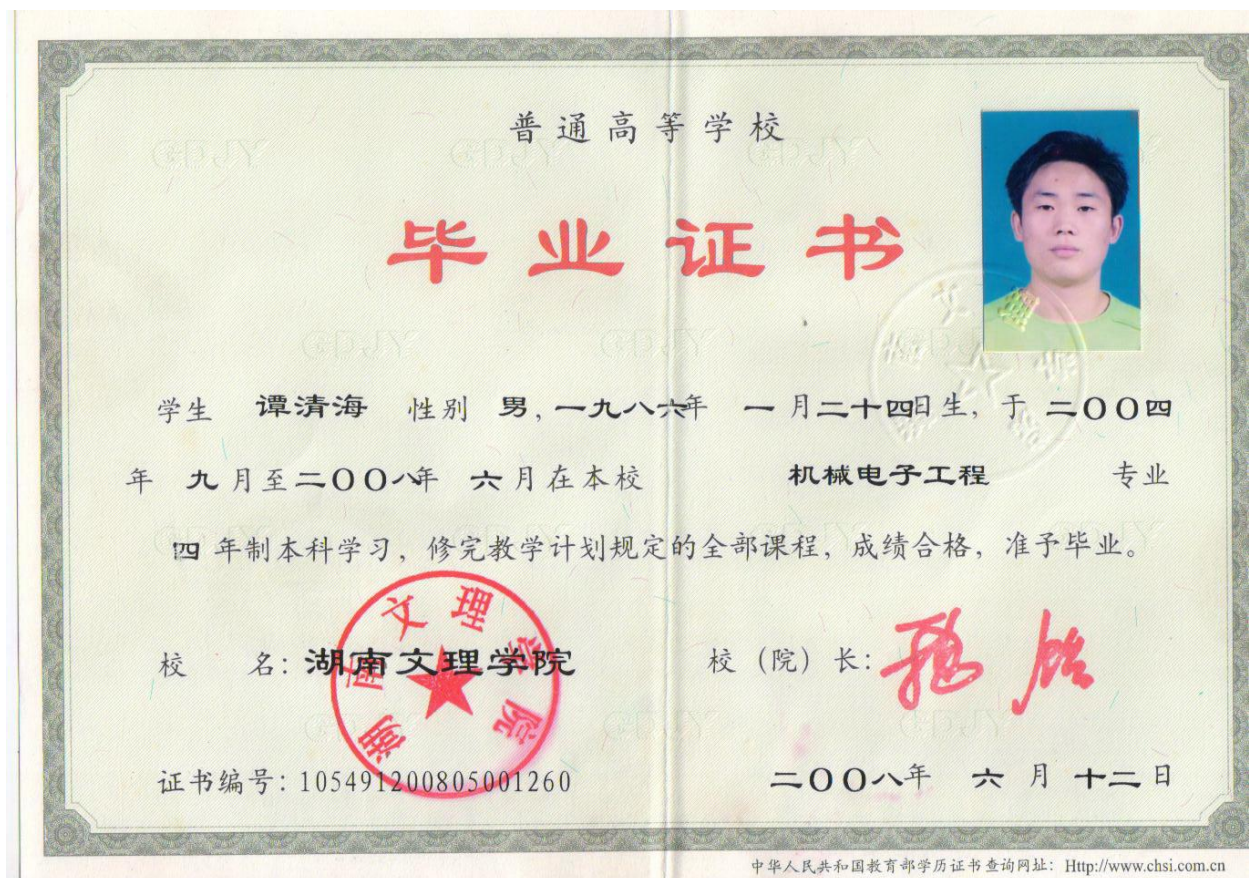 普通高等学校
毕业证书
学生 谭清海 性别 男，一九八六年 一月二十四日生，于 二〇〇四
年 九月至二〇〇八年 六月在本校 机械电子工程 专业
四 年制本科学习，修完教学计划规定的全部课程，成绩合格，准予毕业。
校 名：湖南文理学院
校（院）长：
湖南文理学院
证书编号：105491200805001260
二〇〇八年 六 月 十二 日
中华人民共和国教育部学历证书查询网址：Http://www.chsi.com.cn